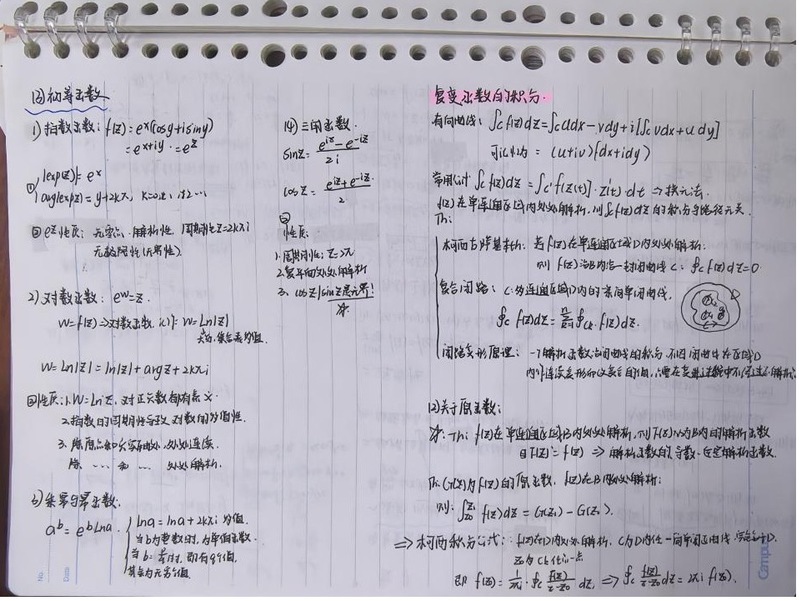 (3) 初等函数
1) 指数函数: f(z) = e^x(cosy+isiny)
= e^{x+iy} = e^z
① |exp(z)| = e^x
arg(expz) = y+2kπ, k=0, ±1, ±2...
② e^z 性质: 无零点. 解析性. 周期性 z=2kπi
2) 对数函数: e^w=z.
w=f(z) ⇒ 对数函数. 记作: w=Ln|z|
W=Ln|z| = ln|z| + argz + 2kπi
2. 指数的周期性导致对数的多值性.
处处连续.
除 ... 和 ... 处处解析.
3) 乘幂与幂函数:
a^b = e^{bLna}.
Lna = lna + 2kπi 多值.
当b为整数时, 为单值函数.
其余为无穷个值.
(4) 三角函数.
sinz = (e^{iz} - e^{-iz}) / 2i
cosz = (e^{iz} + e^{-iz}) / 2
性质:
1. 周期性: z=2π
2. 复平面处处解析
3. cosz/sinz 无界!
复变函数的积分.
有向曲线: ∫_C f(z)dz = ∫_C udx - vdy + i[∫_C vdx + udy]
可记为 = (u+iv)(dx+idy)
常用公式 ∫_C f(z)dz = ∫_C f[z(t)]·z'(t)·dt ⇒ 换元法.
f(z)在单连通区域内处处解析, 则∫_C f(z)dz的积分与路径无关.
Th:
柯西古萨基本Th: 若f(z)在单连通区域D内处处解析:
则 f(z)沿B内任一封闭曲线 C: ∮_C f(z)dz=0.
复合闭路: C为多连通区域D内的简单闭曲线,
∮_C f(z)dz = Σ ∮_{Ck} f(z)dz.
D
闭路变形原理: 一个解析函数沿闭曲线的积分, 不因闭曲线在区域D
(2) 关于原函数:
☆ Th: f(z)在单连通区域B内处处解析, 则F(z)必为B内的解析函数
且F'(z) = f(z) ⇒ 解析函数的导数一定是解析函数.
Th: G(z)为f(z)的原函数, f(z)在B内处处解析:
则: ∫_{z0}^{z1} f(z)dz = G(z1) - G(z0).
⇒ 柯西积分公式: f(z)在D内处处解析, C为D内任一简单闭曲线,
即 f(z0) = 1/2πi · ∮_C f(z)/(z-z0) dz, ⇒ ∮_C f(z)/(z-z0) dz = 2πi f(z0).
No.
Date
Campus